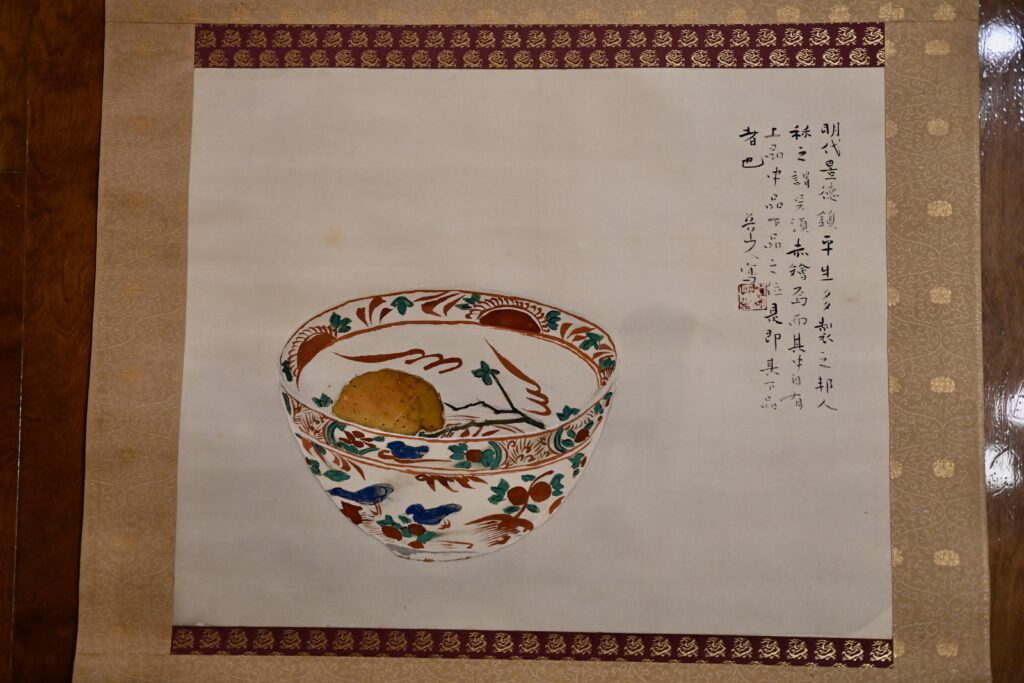 明代景徳鎮平生多製之邦人
称之謂吳須赤繪焉而其中自有
上品中品下品之位是即其下品
者也
寫